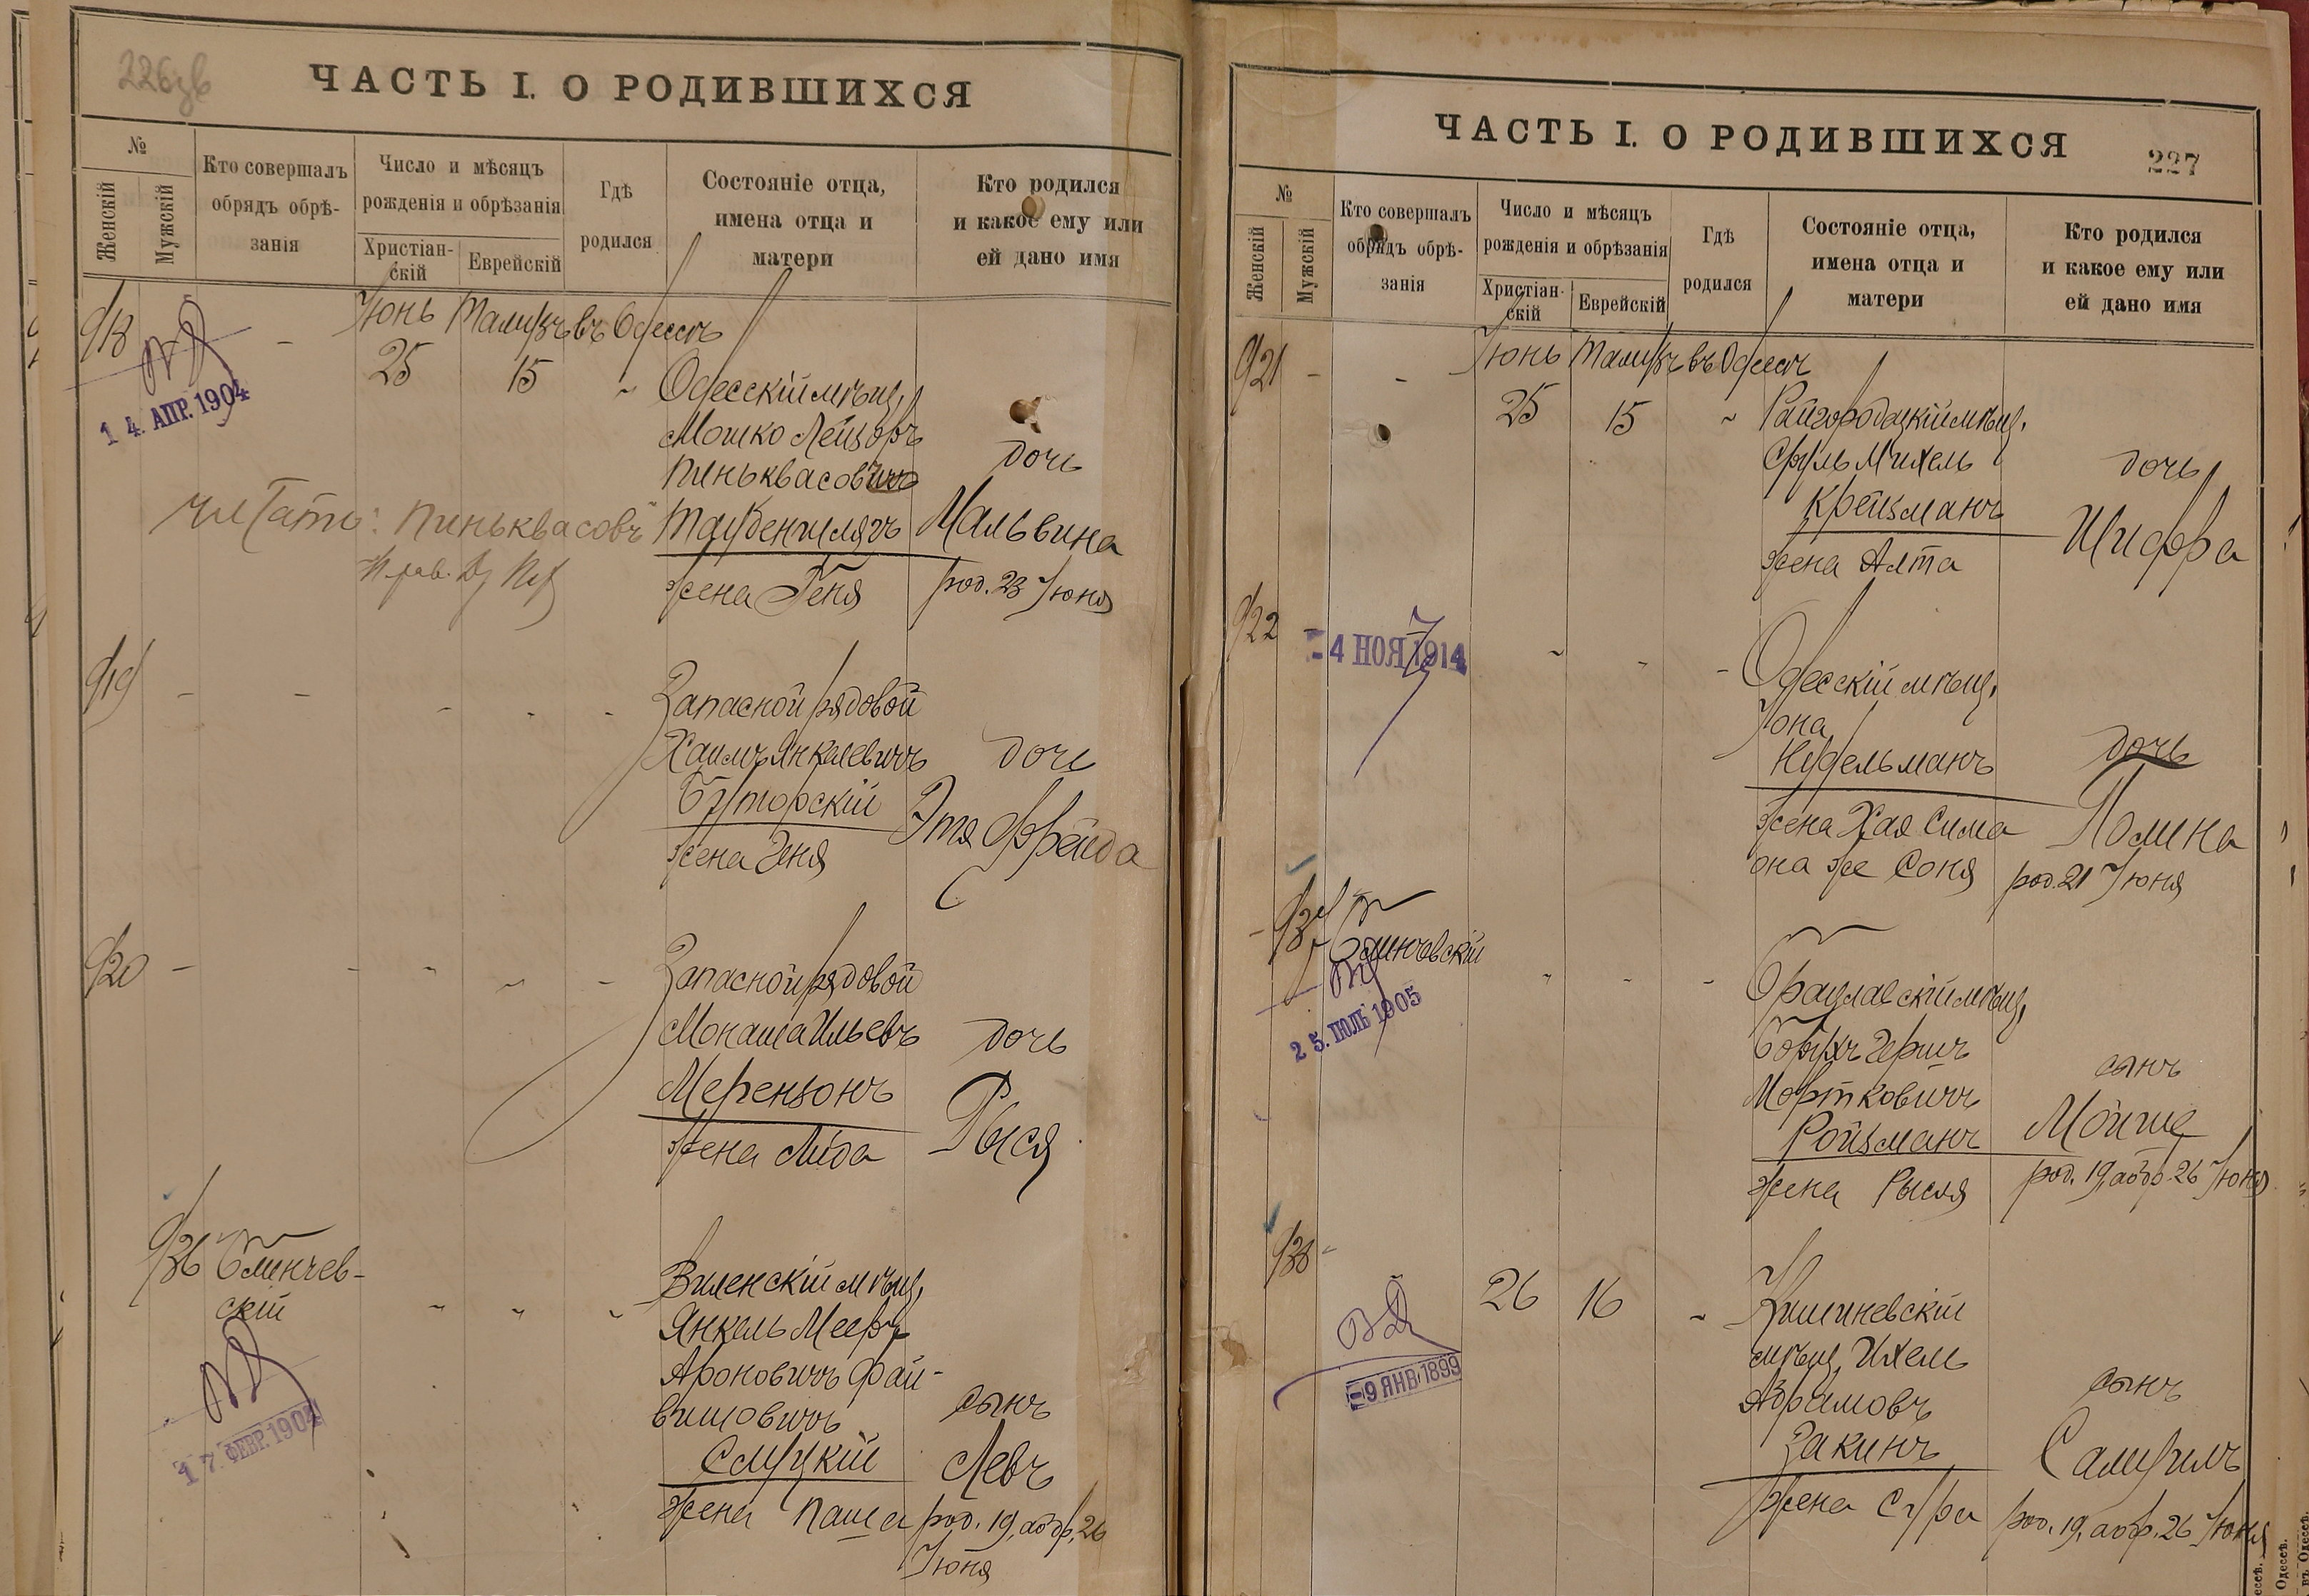 226 зв
ЧАСТЬ I. О РОДИВШИХСЯ
№
Женскій
Мужскій
Кто совершалъ
обрядъ обрѣ-
занія
Число и мѣсяцъ
рожденія и обрѣзанія
Христіан-
скій
Еврейскій
Гдѣ
родился
Состояніе отца,
имена отца и
матери
Кто родился
и какое ему или
ей дано имя
918 - Іюнь Тамузъ въ Одессѣ
25 15 "
14. АПР. 1904
Одесскій мѣщ.
Мошко Лейзоръ
Пиньквасовичъ
Таубеншлягъ
жена Геня
дочь
Мальвина
род. 23 Іюня
читать: Пиньквасовъ
919 - - - - -
Запасной рядовой
Хаимъ Янкелевичъ
Буторскій
жена Геня
дочь
Этя Фрейда
920 - - - - -
Запасной рядовой
Монаша Ильевъ
Мерензонъ
жена Лида
дочь
Рыся
936 Блинчев-
скій
17. ФЕВР. 1904
Виленскій мѣщ.
Янкель Мееръ
Ароновичъ Фай-
вишовичъ
Слуцкій
жена Паша
сынъ
Левъ
род. 19, а обр. 26
Іюня
ЧАСТЬ I. О РОДИВШИХСЯ
227
№
Женскій
Мужскій
Кто совершалъ
обрядъ обрѣ-
занія
Число и мѣсяцъ
рожденія и обрѣзанія
Христіан-
скій
Еврейскій
Гдѣ
родился
Состояніе отца,
имена отца и
матери
Кто родился
и какое ему или
ей дано имя
921 - - Іюнь Тамузъ въ Одессѣ
25 15 "
Райгородацкій мѣщ.
Сруль Михель
Крейзманъ
жена Алта
дочь
Шифра
922 -
-4 НОЯ 1914
Одесскій мѣщ.
Іона
Нудельманъ
жена Хая Сима
она же Соня
дочь
Полина
род. 21 Іюня
Блинчевскій
25. ІЮЛЬ 1905
Брацлавскій мѣщ.
Борухъ Гершъ
Мортковичъ
Ройзманъ
жена Рысля
сынъ
Мойше
род. 19, а обр. 26 Іюня
938 -
26 16 "
-9 ЯНВ 1899
Кишиневскій
мѣщ. Ихель
Абрамовъ
Закинъ
жена Сура
сынъ
Самуилъ
род. 19, а обр. 26 Іюня